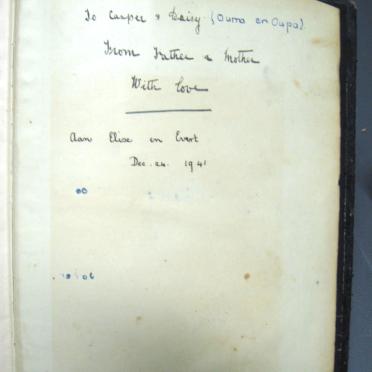 To Casper & Daisy (Ouma en Oupa)
From Father & Mother
With love
Aan Elise en Evert
Dec. 24. 1941